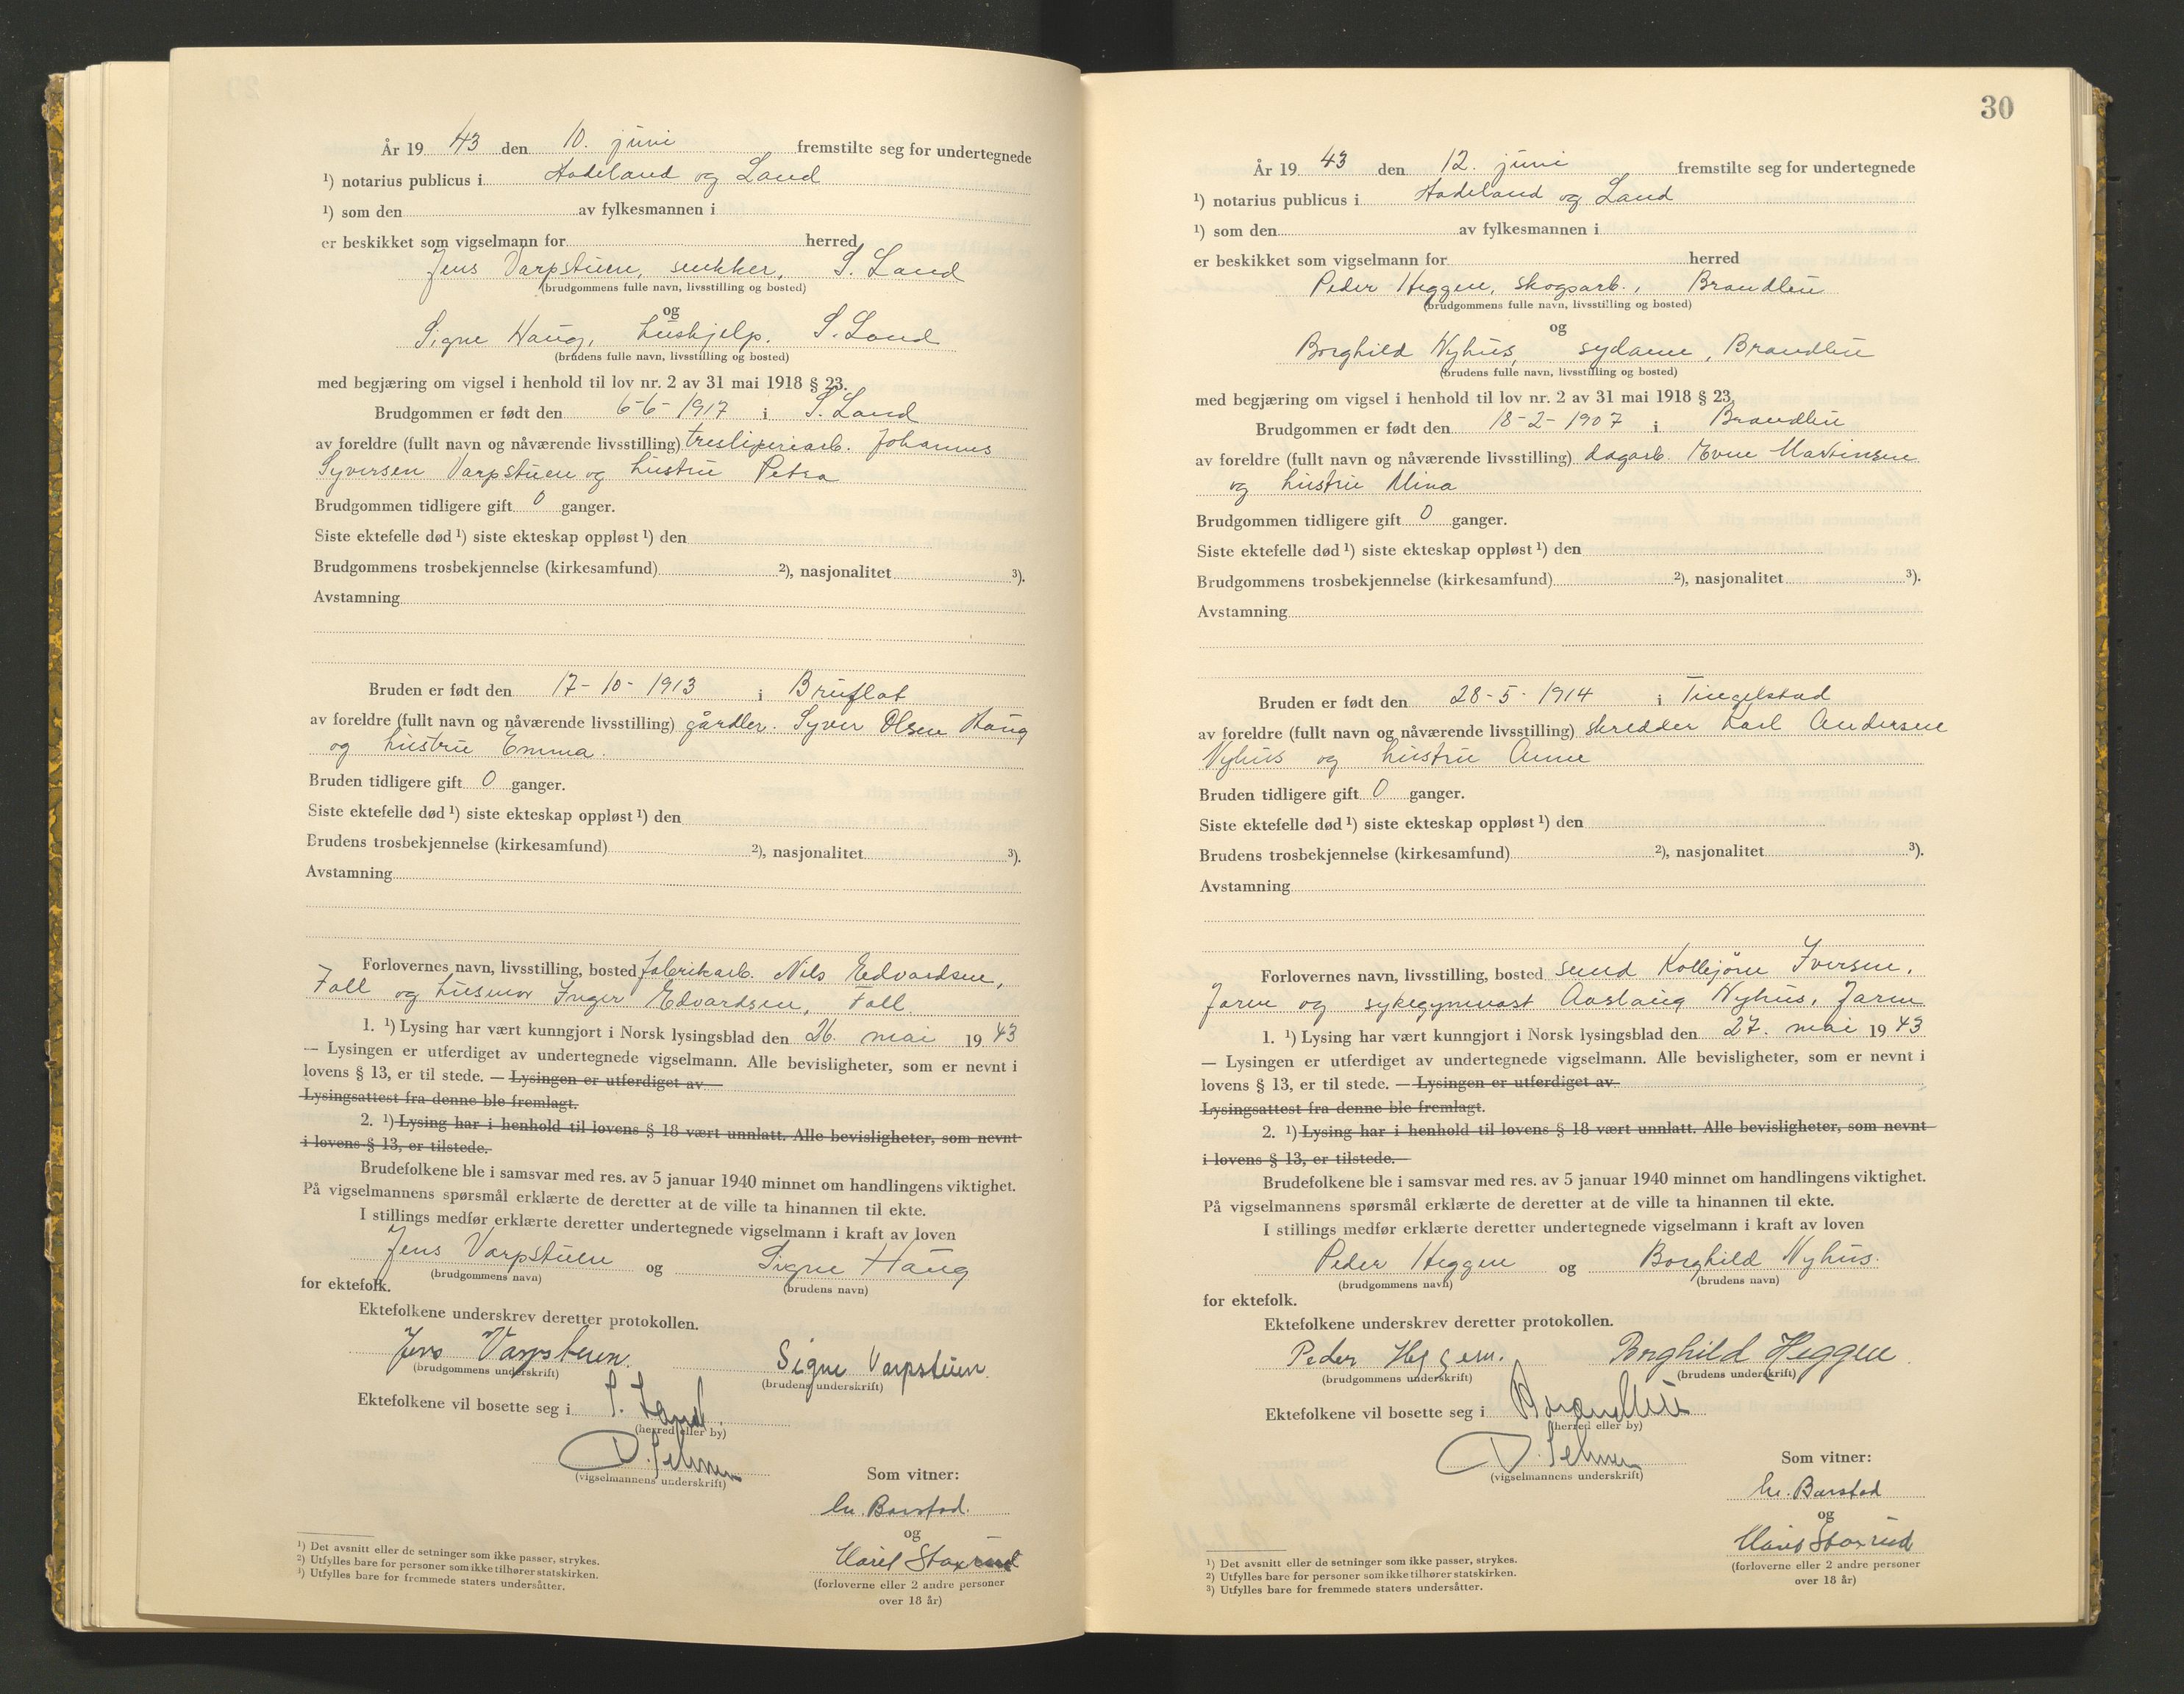 År 19 43 den 10. juni fremstilte seg for undertegnede
¹) notarius publicus i Hadeland og Land
¹) som den av fylkesmannen i
er beskikket som vigselmann for herred
Jens Varpstuen, snekker, S. Land
(brudgommens fulle navn, livsstilling og bosted)
og
Signe Haug, hushjelp. S. Land
(brudens fulle navn, livsstilling og bosted)
med begjæring om vigsel i henhold til lov nr. 2 av 31 mai 1918 § 23.
Brudgommen er født den 6-6-1917 i S. Land
av foreldre (fullt navn og nåværende livsstilling) tresliperiarb. Johannes
Syversen Varpstuen og hustru Petra
Brudgommen tidligere gift 0 ganger.
Siste ektefelle død ¹) siste ekteskap oppløst ¹) den
Brudgommens trosbekjennelse (kirkesamfund) ²), nasjonalitet ³).
Avstamning
Bruden er født den 17-10-1913 i Bruflat
av foreldre (fullt navn og nåværende livsstilling) gårdbr. Syver Olsen Haug
og hustru Emma.
Bruden tidligere gift 0 ganger.
Siste ektefelle død ¹) siste ekteskap oppløst ¹) den
Brudens trosbekjennelse (kirkesamfund) ²), nasjonalitet ³).
Avstamning
Forlovernes navn, livsstilling, bosted fabrikarb. Nils Edvardsen,
Fall og husmor Inger Edvardsen, Fall.
1. ¹) Lysing har vært kunngjort i Norsk lysingsblad den 26. mai 19 43
— Lysingen er utferdiget av undertegnede vigselmann. Alle bevisligheter, som er nevnt i
lovens § 13, er til stede. — Lysingen er utferdiget av
Lysingsattest fra denne ble fremlagt.
2. ¹) Lysing har i henhold til lovens § 18 vært unnlatt. Alle bevisligheter, som nevnt
i lovens § 13, er tilstede.
Brudefolkene ble i samsvar med res. av 5 januar 1940 minnet om handlingens viktighet.
På vigselmannens spørsmål erklærte de deretter at de ville ta hinannen til ekte.
I stillings medfør erklærte deretter undertegnede vigselmann i kraft av loven
Jens Varpstuen og Signe Haug
(brudgommens navn) (brudens navn)
for ektefolk.
Ektefolkene underskrev deretter protokollen.
Jens Varpstuen. Signe Varpstuen.
(brudgommens underskrift) (brudens underskrift)
Ektefolkene vil bosette seg i S. Land.
(herred eller by)
(vigselmannens underskrift)
Som vitner:
Barstad.
og
Staxrud
(forloverne eller 2 andre personer
over 18 år)
¹) Det avsnitt eller de setninger som ikke passer, strykes.
²) Utfylles bare for personer som ikke tilhører statskirken.
³) Utfylles bare for fremmede staters undersåtter.
30
År 19 43 den 12. juni fremstilte seg for undertegnede
¹) notarius publicus i Hadeland og Land
¹) som den av fylkesmannen i
er beskikket som vigselmann for herred
Peder Heggen, skogsarb., Brandbu
(brudgommens fulle navn, livsstilling og bosted)
og
Borghild Nyhus, sydame, Brandbu
(brudens fulle navn, livsstilling og bosted)
med begjæring om vigsel i henhold til lov nr. 2 av 31 mai 1918 § 23.
Brudgommen er født den 18-2-1907 i Brandbu
av foreldre (fullt navn og nåværende livsstilling) dagarb. Martinsen
og hustru Mina
Brudgommen tidligere gift 0 ganger.
Siste ektefelle død ¹) siste ekteskap oppløst ¹) den
Brudgommens trosbekjennelse (kirkesamfund) ²), nasjonalitet ³).
Avstamning
Bruden er født den 28-5-1914 i Tingelstad
av foreldre (fullt navn og nåværende livsstilling) skredder Karl Andersen
Nyhus og hustru Anne
Bruden tidligere gift 0 ganger.
Siste ektefelle død ¹) siste ekteskap oppløst ¹) den
Brudens trosbekjennelse (kirkesamfund) ²), nasjonalitet ³).
Avstamning
Forlovernes navn, livsstilling, bosted Iversen,
Jaren og sykegymnast Aaslaug Nyhus, Jaren
1. ¹) Lysing har vært kunngjort i Norsk lysingsblad den 27. mai 19 43
— Lysingen er utferdiget av undertegnede vigselmann. Alle bevisligheter, som er nevnt i
lovens § 13, er til stede. — Lysingen er utferdiget av
Lysingsattest fra denne ble fremlagt.
2. ¹) Lysing har i henhold til lovens § 18 vært unnlatt. Alle bevisligheter, som nevnt
i lovens § 13, er tilstede. —
Brudefolkene ble i samsvar med res. av 5 januar 1940 minnet om handlingens viktighet.
På vigselmannens spørsmål erklærte de deretter at de ville ta hinannen til ekte.
I stillings medfør erklærte deretter undertegnede vigselmann i kraft av loven
Peder Heggen og Borghild Nyhus.
(brudgommens navn) (brudens navn)
for ektefolk.
Ektefolkene underskrev deretter protokollen.
Peder Heggen. Borghild Heggen.
(brudgommens underskrift) (brudens underskrift)
Ektefolkene vil bosette seg i Brandbu
(herred eller by)
(vigselmannens underskrift)
Som vitner:
Barstad
og
Staxrud
(forloverne eller 2 andre personer
over 18 år)
¹) Det avsnitt eller de setninger som ikke passer, strykes.
²) Utfylles bare for personer som ikke tilhører statskirken.
³) Utfylles bare for fremmede staters undersåtter.